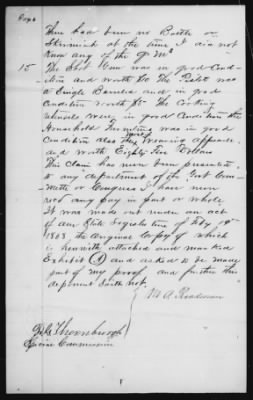 Page 6
There had been no Battle or
Skirmish at the time I did not
know any of the
15 The Shot Gun was in good Cond-
ition and worth The Pistol was
a Single Barreled and in good
Condition worth The Cooking
utensils were in good Condition the
Household Furniture was in good
Condition also the wearing apparel
and worth Eighty Five Dollars
This claim has never been presented
to any department of the Govt Com-
mittee or Congress I have never
recd any pay in part or whole.
It was made out under an act
of our State Legislature of Feby 19th
1868 the original Copy of which
is herewith attached and marked
Exhibit (A) and asked to be made
part of my proof, and further this
deponent saith not.
M. A.
Thornburgh
Special Commissioner